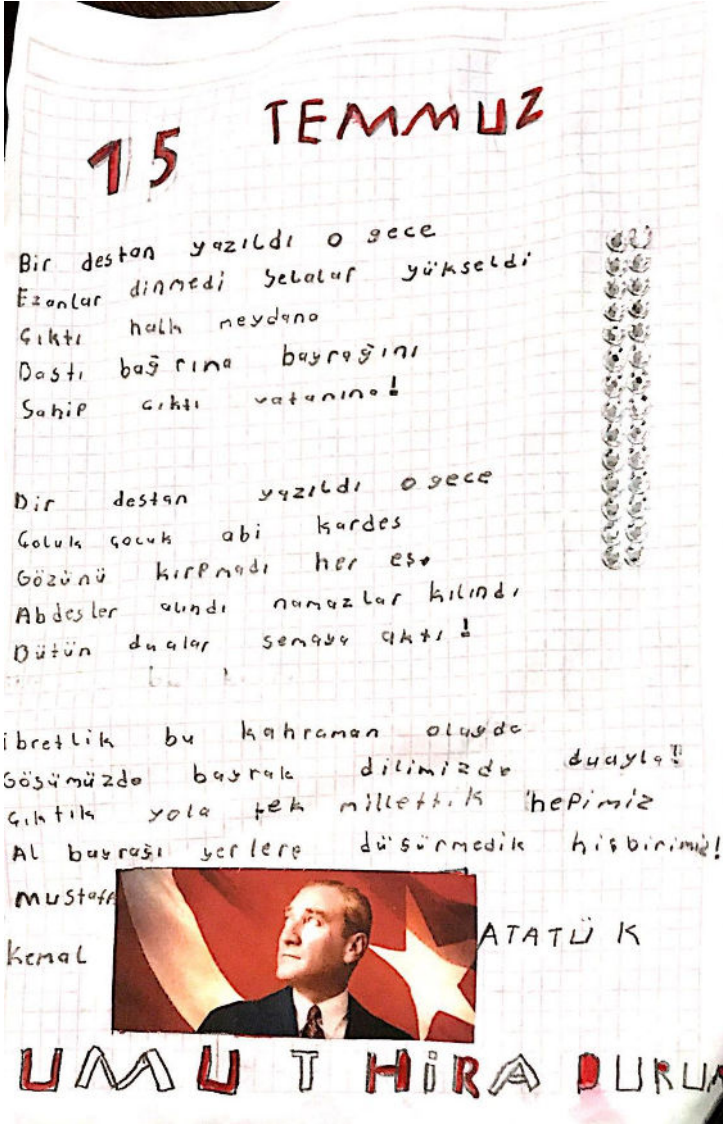 15 TEMMUZ
Bir destan yazıldı o gece
Ezanlar dinmedi Selalar yükseldi
Çıktı halk meydana
Bastı bağrına bayrağını
Sahip çıktı vatanına!
Bir destan yazıldı o gece
Çoluk çocuk abi kardeş
Gözünü kırpmadı her eşe
Abdesler alındı namazlar kılındı
Bütün dualar semaya aktı!
ibretlik bu kahraman olayda
Göğsümüzde bayrak dilimizde duayla!
Çıktık yola tek millettik hepimiz
Al bayrağı yerlere düşürmedik hiçbirimiz!
Mustafa
Kemal
ATATÜ K
UMUT HiRA DURUM